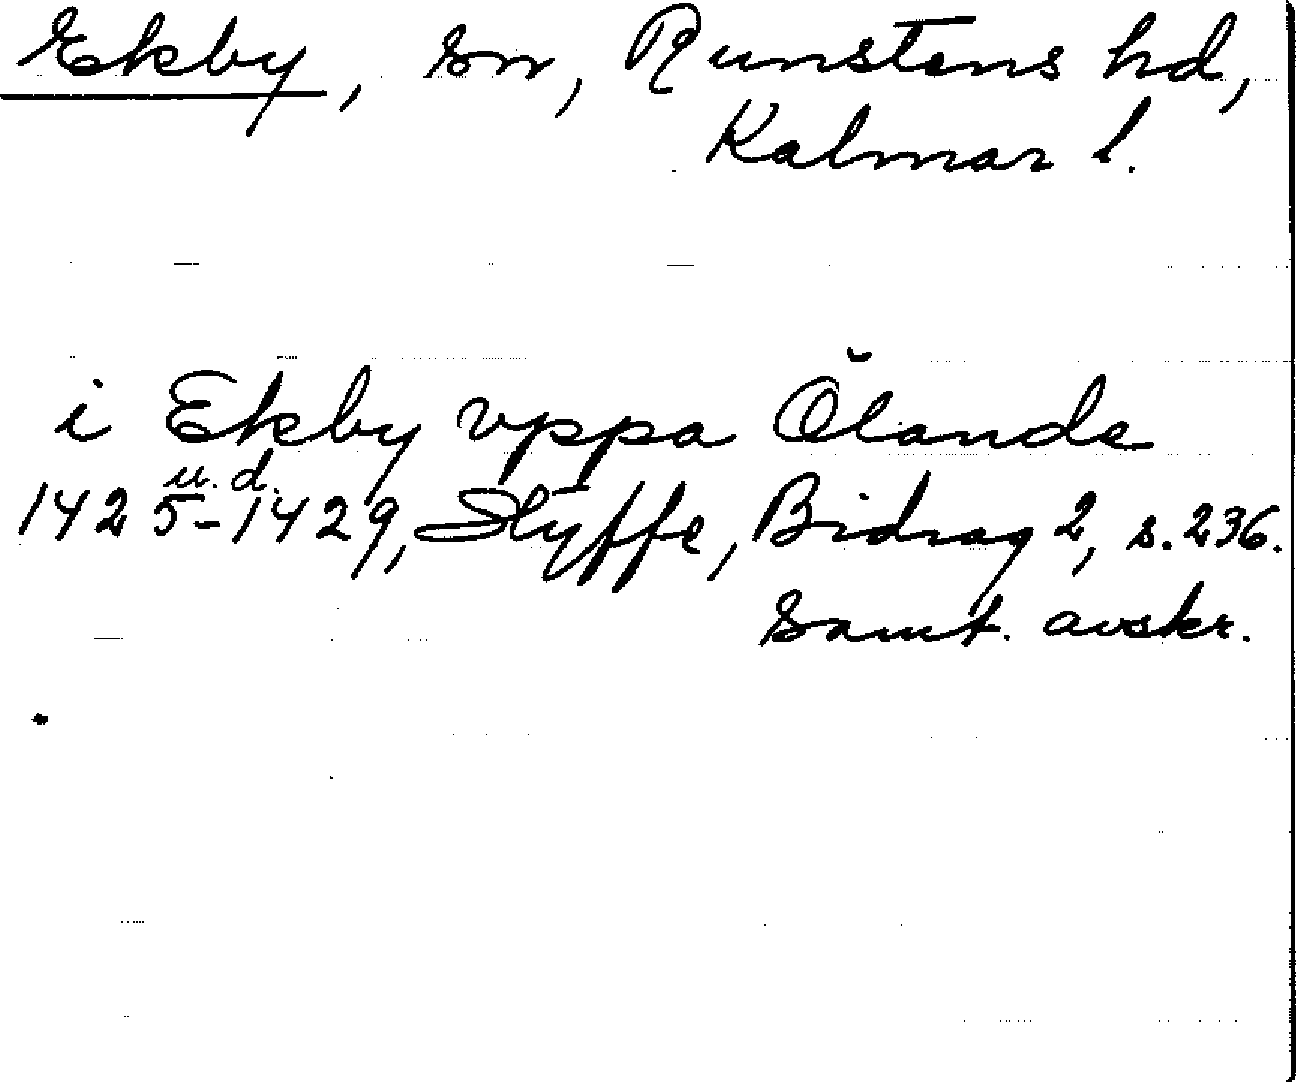 Ekby, sn, Runstens hd,
Kalmar l.
i Ekby vppa Ölande
u. d.
1425-1429, Styffe, Bidrag 2, s. 236.
Samt. avskr.